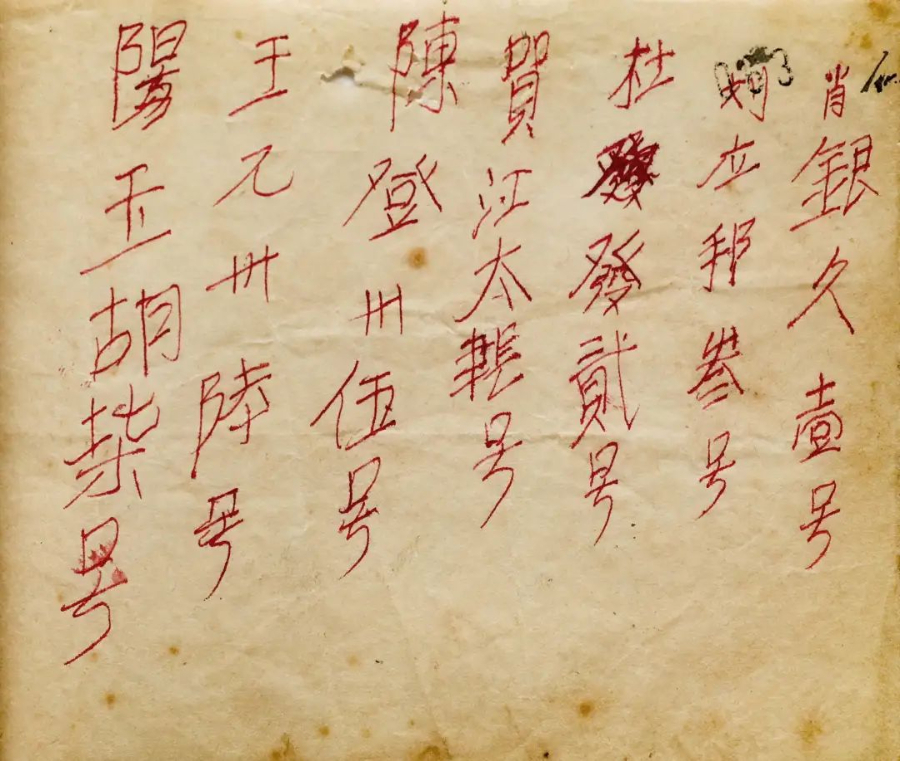 肖銀久壹号
立邦叁号
杜發貳号
賀江太号
陳登卅伍号
王元卅陸号
陽玉胡柒号